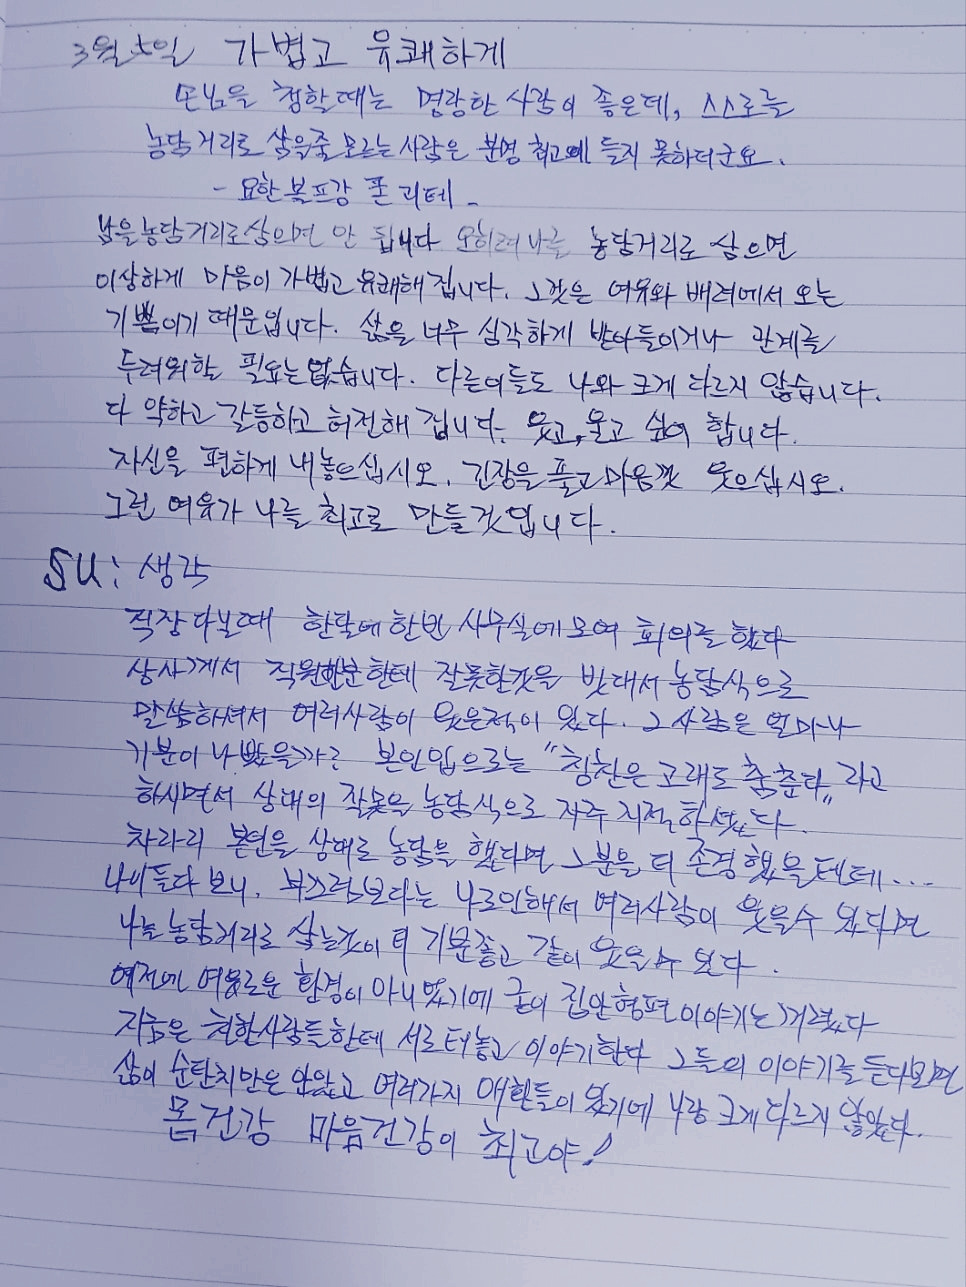 3월 5일 가볍고 유쾌하게
손님을 청할때는 명랑한 사람이 좋은데, 스스로를
농담거리로 삼을줄 모르는 사람은 분명 최고에 들지 못하더군요.
- 요한 볼프강 폰 괴테 -
남을 농담거리로 삼으면 안 됩니다 오히려 나를 농담거리로 삼으면
이상하게 마음이 가볍고 유쾌해집니다. 그것은 여유와 배려에서 오는
기쁨이기 때문입니다. 삶을 너무 심각하게 받아들이거나 관계를
두려워할 필요는 없습니다. 다른이들도 나와 크게 다르지 않습니다.
다 약하고 갈등하고 허전해 집니다. 웃고, 울고 싶어 합니다.
자신을 편하게 내놓으십시오. 긴장을 풀고 마음껏 웃으십시오.
그런 여유가 나를 최고로 만들것입니다.
SU: 생각
직장다닐때 한달에 한번 사무실에 모여 회의를 했다
상사께서 직원한분한테 잘못한것을 빗대서 농담식으로
말씀하셔서 여러사람이 웃은적이 있다. 그 사람은 얼마나
기분이 나빴을까? 본인입으로는 "칭찬은 고래도 춤춘다" 라고
하시면서 상대의 잘못을 농담식으로 자주 지적하셨다.
차라리 본인을 상대로 농담을 했다면 그분을 더 존경했을텐데...
나이들다 보니, 부끄럼보다는 나로인해서 여러사람이 웃을수 있다면
나를 농담거리로 삼는것이 더 기분좋고 같이 웃을 수 있다.
예전에 여유로운 환경이 아니였기에 굳이 집안형편 이야기는 꺼렸다
지금은 친한사람들한테 서로 터놓고 이야기한다 그들의 이야기를 듣다보면
삶이 순탄치만은 않았고 여러가지 애환들이 있기에 나랑 크게 다르지 않았다.
몸건강 마음건강이 최고야!